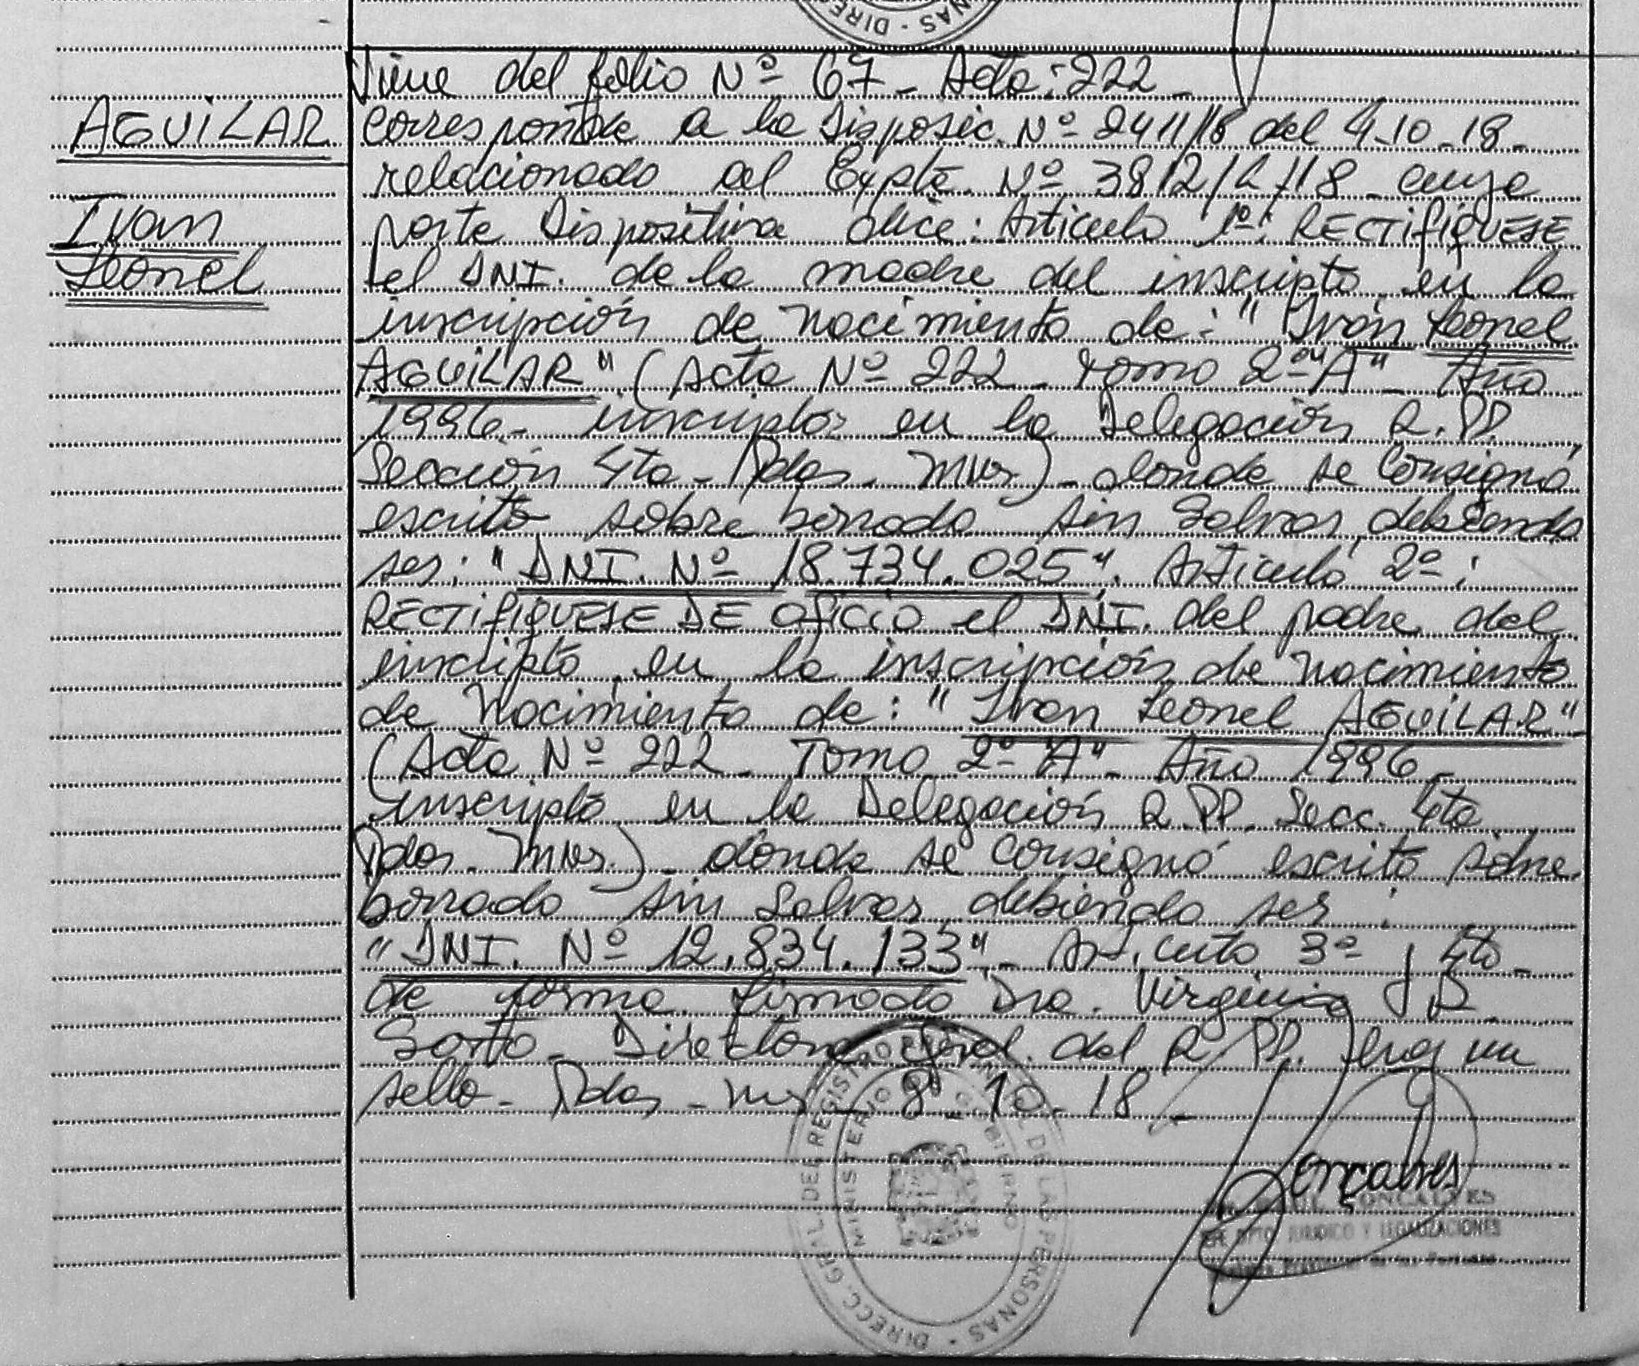 Viene del folio Nº 67 - Acta: 222 -
AGUILAR
Ivan
Leonel
Corresponde a la Disposic. Nº 2411/18 del 4-10-18-
relacionado al Expte. Nº 3812/L/18 - cuya
parte Dispositiva dice: Articulo 1º: RECTIFIQUESE
el DNI. de la madre del inscripto en la
inscripción de nacimiento de: "Ivan Leonel
AGUILAR" (Acta Nº 222 - Tomo 2º "A" - Año
1996 - inscripto en la Delegación R.PP.
Sección 4ta - Pdas. Mnes) - donde se consignó
escrito sobre borrado sin salvar, debiendo
ser: "DNI. Nº 18.734.025". Articulo 2º:
RECTIFIQUESE DE OFICIO el DNI. del padre del
inscripto en la inscripción de nacimiento
de Nacimiento de: "Ivan Leonel AGUILAR"
(Acta Nº 222 - Tomo 2º "A" - Año 1996 -
inscripto en la Delegación R.PP. Secc. 4ta
Pdas. Mnes.) - donde se consignó escrito sobre
borrado sin salvar, debiendo ser:
"DNI. Nº 12.834.133" - Articulo 3º y 4to -
de forma firmado Dra. Virginia
Director Gral. del R.PP. Hay un
sello - Pdas - Mnes - 8-10-18 -
DIRECC. GRAL. DEL REGISTRO PROVINCIAL DE LAS PERSONAS
MINISTERIO DE GOBIERNO
Goncalves
GONCALVES
DPTO. JURIDICO Y LEGALIZACIONES